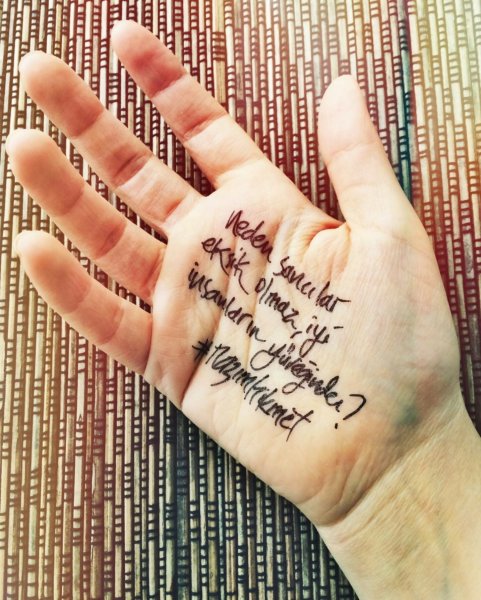 Neden sancılar
eksik olmaz, iyi
insanların yüreğinden?
#NazımHikmet